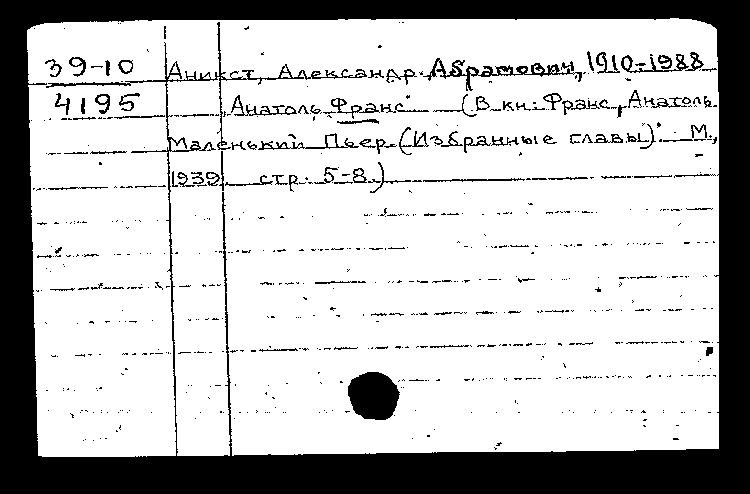 39-10 Аникст, Александр Абрамович, 1910-1988
4195 Анатоль Франс. (В кн: Франс, Анатоль
Маленький Пьер. (Избранные главы). М.,
1939. стр. 5-8.)